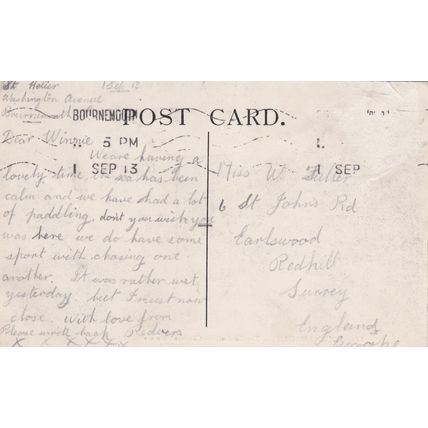 St Helier 1 Sep 13
Washington Avenue
Bournemouth
BOURNEMOUTH
5 PM
1 SEP 13
POST CARD.
1 SEP
Dear Winnie
We are having a
lovely time, the sea has been
calm and we have had a lot
of paddling, dont you wish you
was here we do have some
sport with chasing one
another. It was rather wet
yesterday but I must now
close. With love from
Please write back Redvers
X X X X X
Miss W
6 St John's Rd
Earlswood
Redhill
Surrey
England
Europe